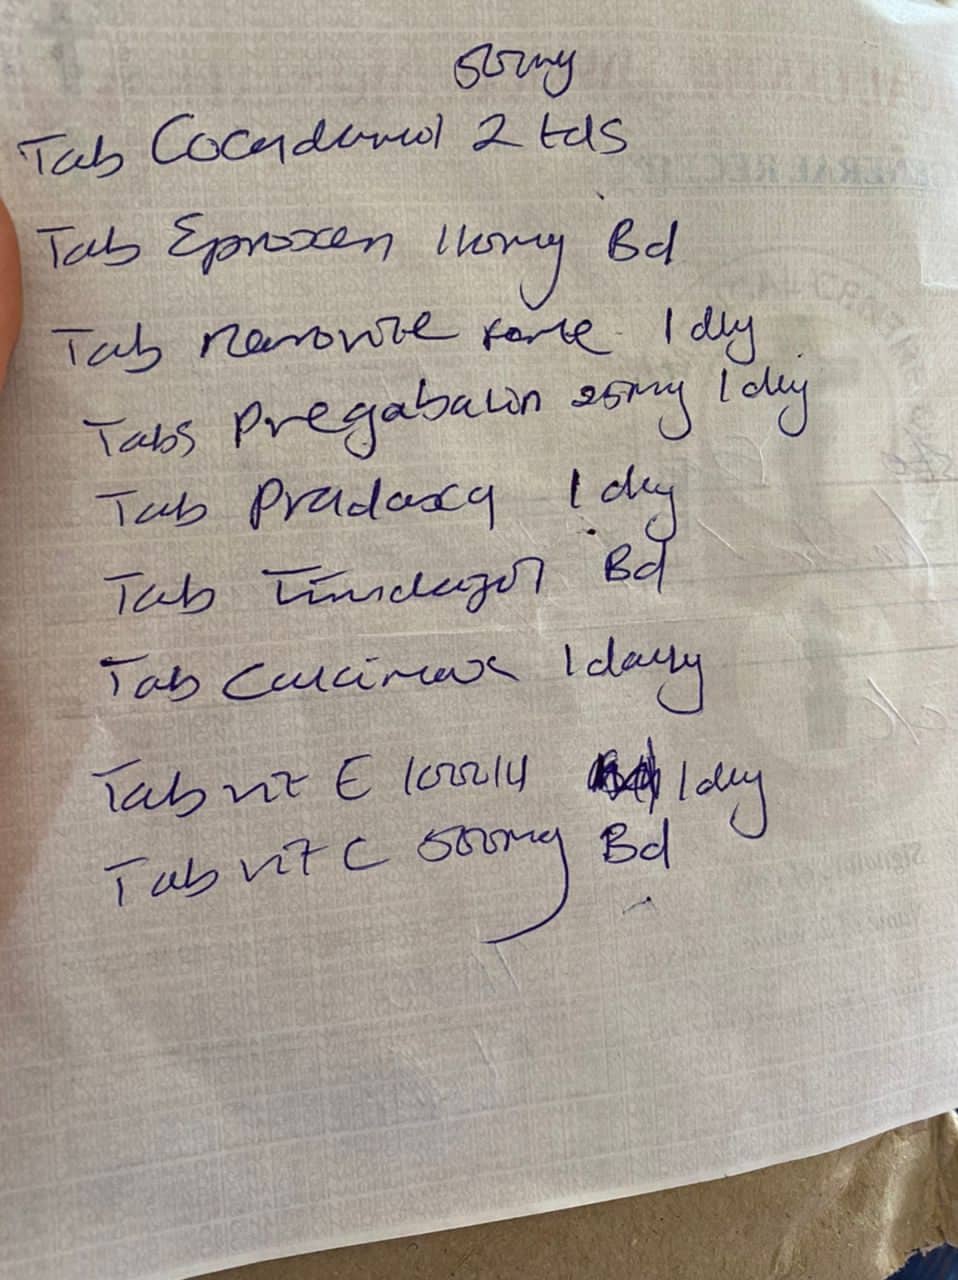 500mg
Tab Cocodamol 2 tds
Tab Eproxen 1 Bd
Tab forte 1 dly
Tabs Pregabalin 25mg 1 dly
Tab Pradaxa 1 dly
Tab Tinidazol Bd
Tab Calcimax 1 daily
Tab vit E 100 IU 1 dly
Tab vit C 500mg Bd